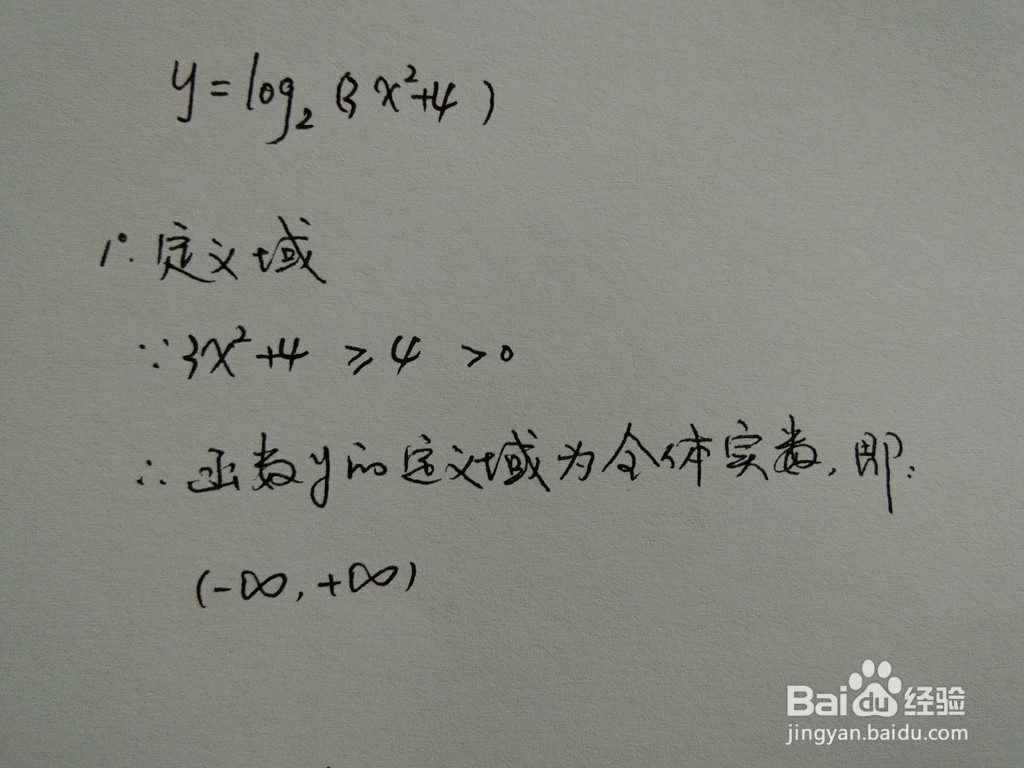 y=log₂(3x²+4)
1°.定义域
∵3x²+4 ≥4 >0
∴函数y的定义域为全体实数,即:
(-∞,+∞)
Baidu经验
jingyan.baidu.com